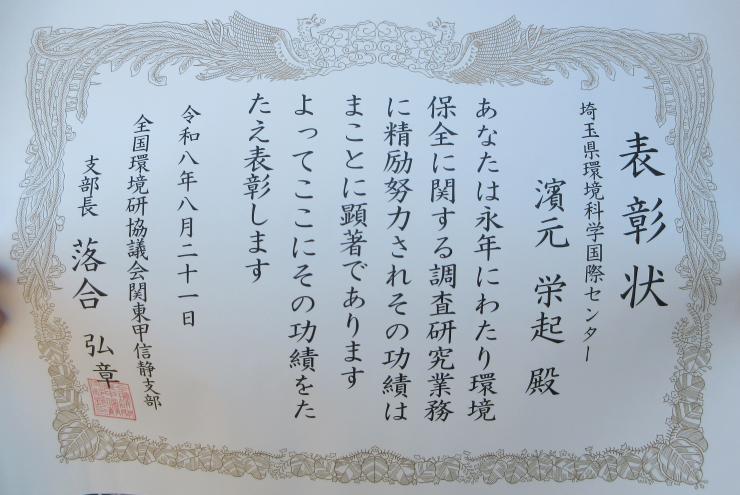 表彰状
埼玉県環境科学国際センター
濱元 栄起 殿
あなたは永年にわたり環境
保全に関する調査研究業務
に精励努力されその功績は
まことに顕著であります
よってここにその功績をた
たえ表彰します
令和八年八月二十一日
全国環境研協議会関東甲信静支部
支部長 落合 弘章